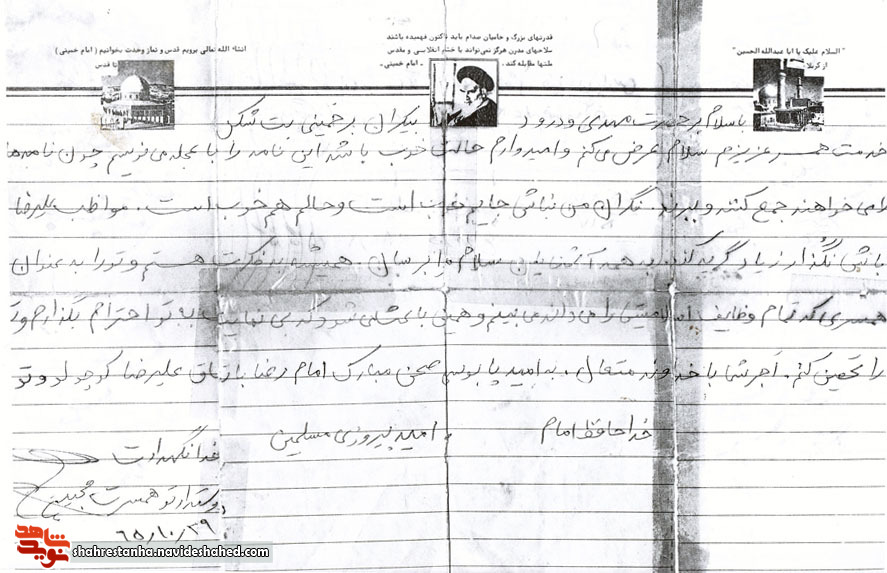 " السلام علیک یا ابا عبدالله الحسین "
از کربلا
قدرتهای بزرگ و حامیان صدام باید تاکنون فهمیده باشند
سلاحهای مدرن هرگز نمی‌تواند با خشم انقلابی و مقدس
ملتها مقابله کند . - امام خمینی -
انشاء الله تعالی برویم قدس و نماز وحدت بخوانیم ( امام خمینی )
تا قدس
با سلام بر حضرت مهدی و درود بیکران بر خمینی بت شکن
خدمت همسر عزیزم سلام عرض می‌کنم و امیدوارم حالت خوب باشد این نامه را با عجله می نویسم چون نامه‌ها
را می خواهند جمع کنند و ببرند . نگران من نباش جایم خوب است و حالم هم خوب است . مواظب علیرضا
باش نگذار زیاد گریه کند . به همه آشنایان سلام مرا برسان . همیشه به فکرت هستم و تو را به عنوان
همسری که تمام وظایف اسلامیش را می داند می بینم و همین باعث می شود که بی نهایت به تو احترام بگذارم و
را تحسین کنم . اجر شما با خداوند متعال . به امید پابوسی صحن مبارک امام رضا با اتفاق علیرضا کوچولو و تو
خدا حافظ امام . امید پیروزی مسلمین
خدا نگهدارت
دوستدار تو همسرت
۶۵/۱۰/۲۹
نوید شاهد
shahrestanha.navideshahed.com